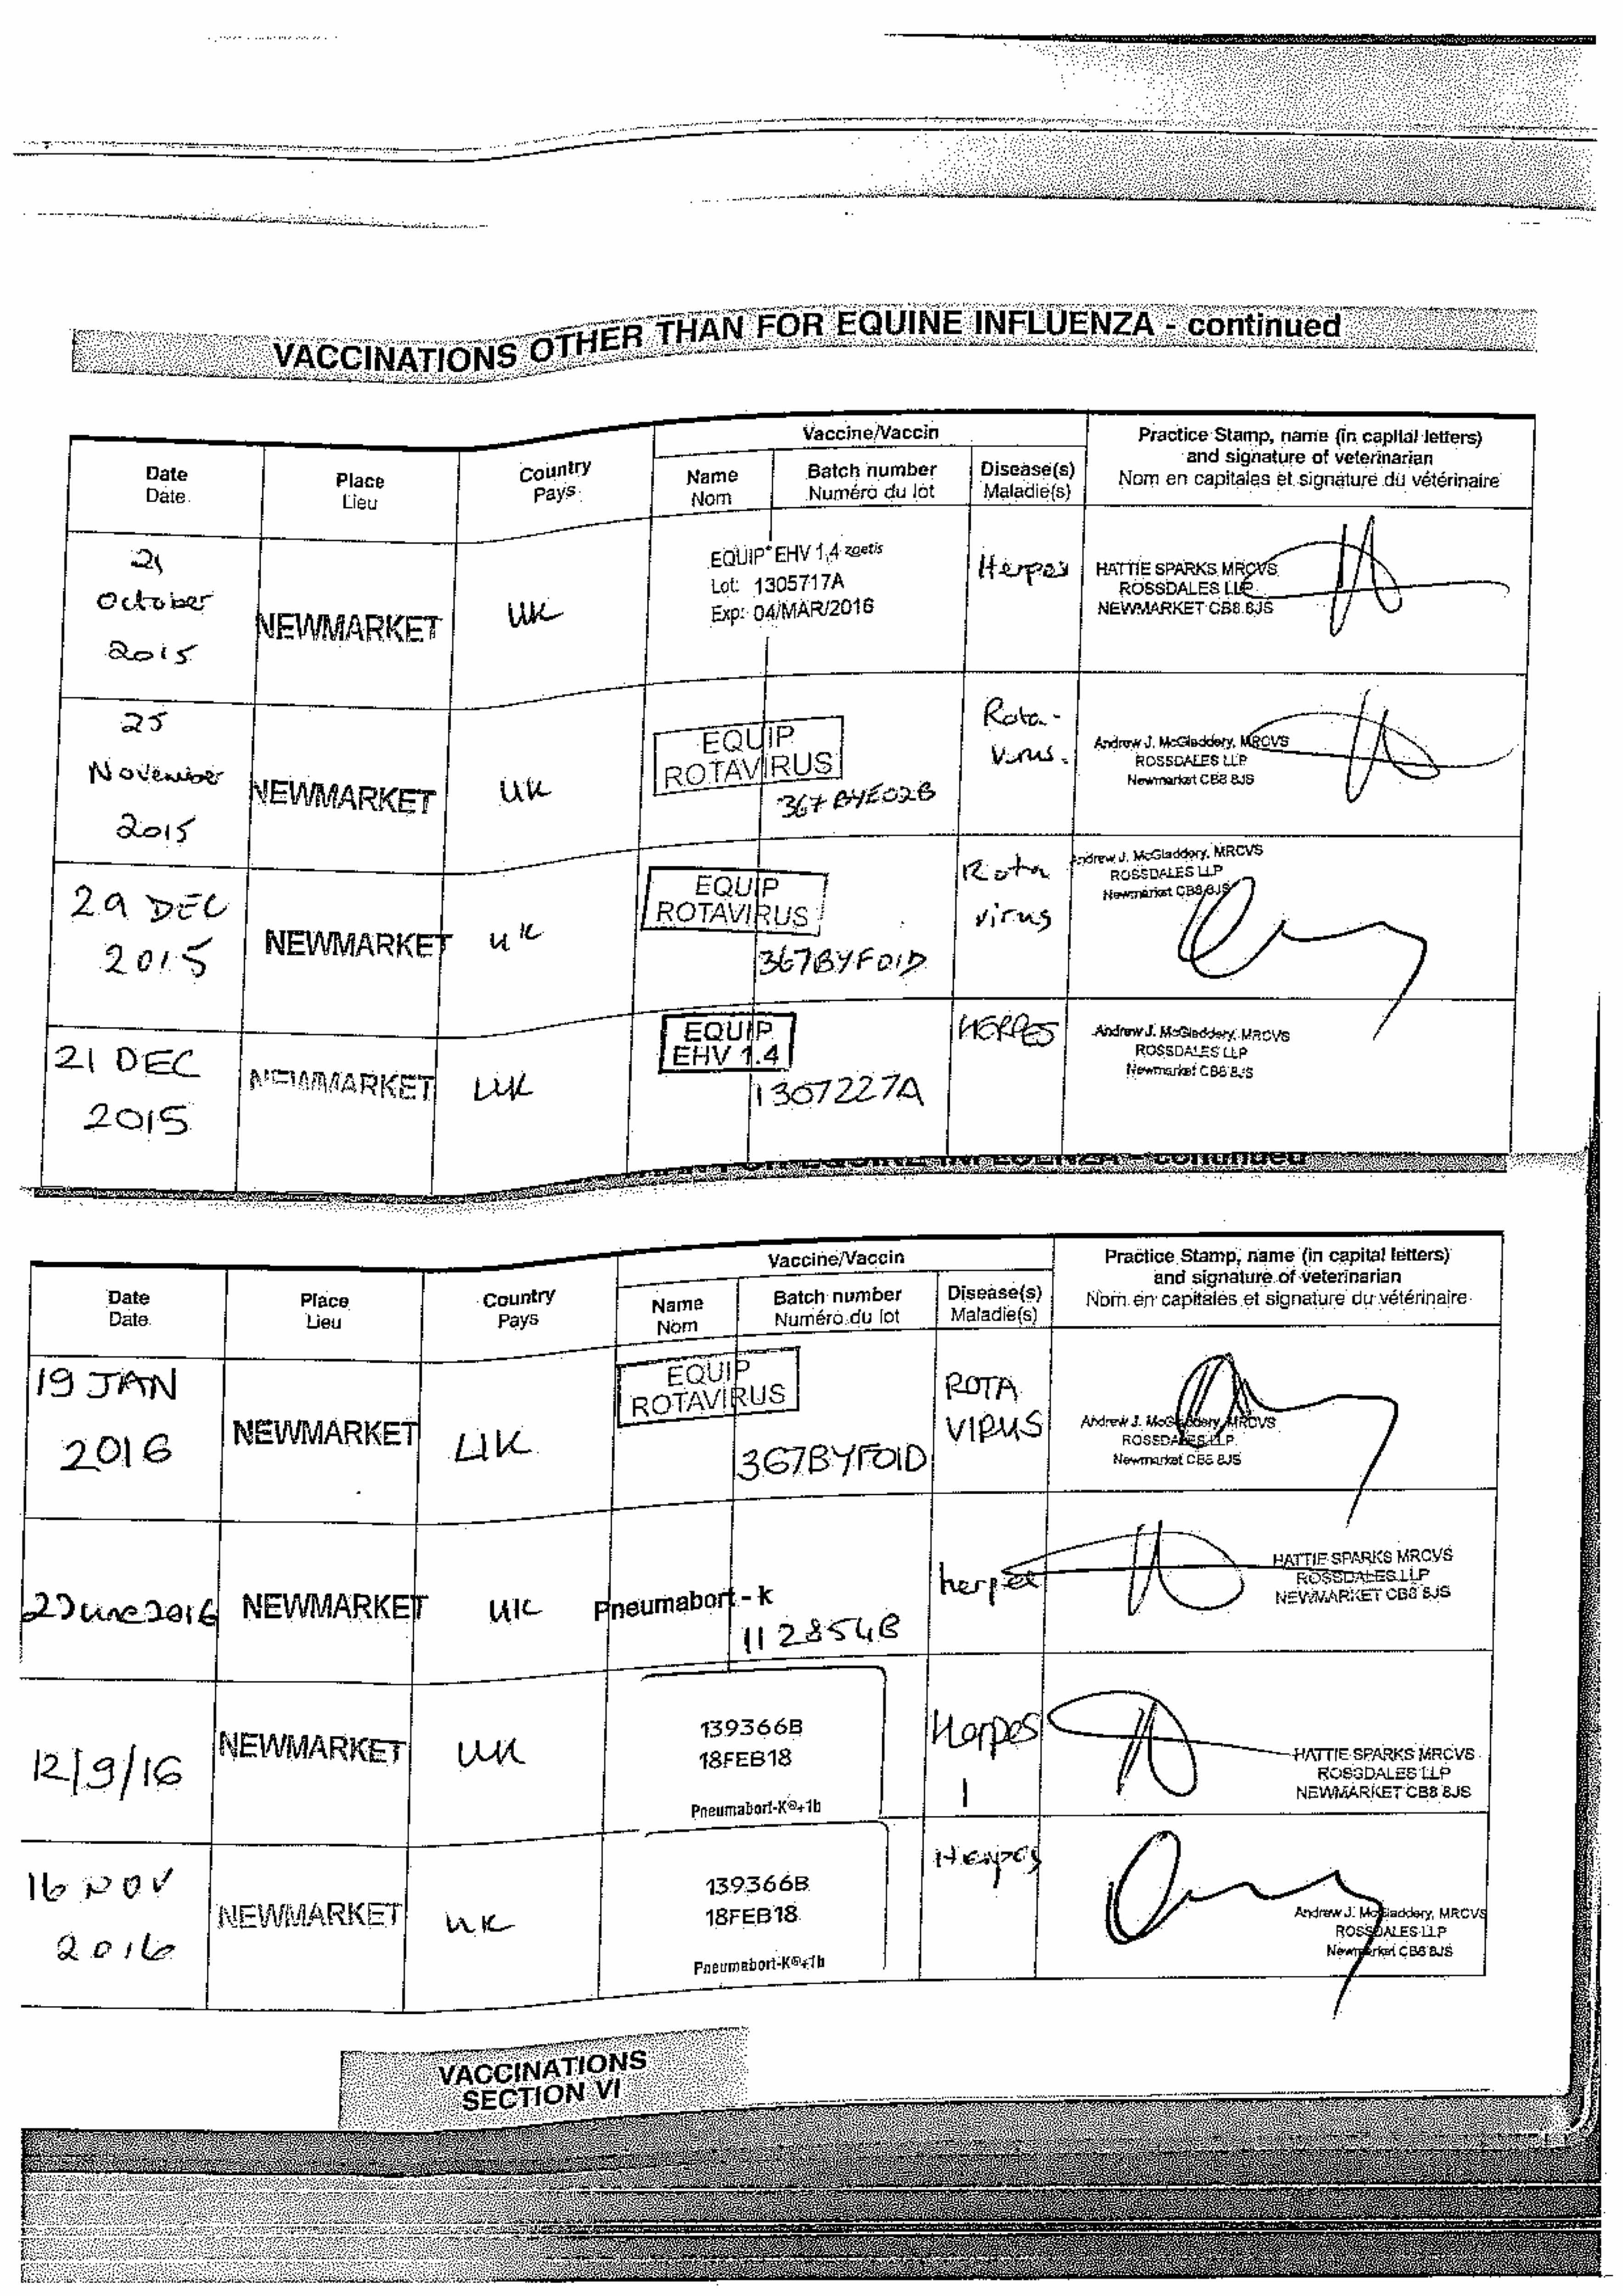 VACCINATIONS OTHER THAN FOR EQUINE INFLUENZA - continued
Vaccine/Vaccin
Practice Stamp, name (in capital letters)
and signature of veterinarian
Nom en capitales et signature du vétérinaire
Date
Date
Place
Lieu
Country
Pays
Name
Nom
Batch number
Numéro du lot
Disease(s)
Maladie(s)
21
October
2015
NEWMARKET
UK
EQUIP® EHV 1,4 zoetis
Lot: 1305717A
Exp: 04/MAR/2016
Herpes
HATTIE SPARKS MRCVS
ROSSDALES LLP
NEWMARKET CB8 8JS
25
November
2015
NEWMARKET
UK
EQUIP
ROTAVIRUS
367BYE02B
Rota-
virus.
Andrew J. McGladdery, MRCVS
ROSSDALES LLP
Newmarket CB8 8JS
29 DEC
2015
NEWMARKET
UK
EQUIP
ROTAVIRUS
367BYF01D
Rota
virus
Andrew J. McGladdery, MRCVS
ROSSDALES LLP
Newmarket CB8 8JS
21 DEC
2015
NEWMARKET
UK
EQUIP
EHV 1.4
1307227A
HERPES
Andrew J. McGladdery, MRCVS
ROSSDALES LLP
Newmarket CB8 8JS
EQUINE INFLUENZA - continued
Vaccine/Vaccin
Practice Stamp, name (in capital letters)
and signature of veterinarian
Nom en capitales et signature du vétérinaire
Date
Date
Place
Lieu
Country
Pays
Name
Nom
Batch number
Numéro du lot
Disease(s)
Maladie(s)
19 JAN
2016
NEWMARKET
UK
EQUIP
ROTAVIRUS
367BYF01D
ROTA
VIRUS
Andrew J. McGladdery, MRCVS
ROSSDALES LLP
Newmarket CB8 8JS
2 June 2016
NEWMARKET
UK
Pneumabort - k
112854B
herpes
HATTIE SPARKS MRCVS
ROSSDALES LLP
NEWMARKET CB8 8JS
12/9/16
NEWMARKET
UK
139366B
18FEB18
Pneumabort-K®+1b
Herpes
1
HATTIE SPARKS MRCVS
ROSSDALES LLP
NEWMARKET CB8 8JS
16 NOV
2016
NEWMARKET
UK
139366B
18FEB18
Pneumabort-K®+1b
Herpes
Andrew J. McGladdery, MRCVS
ROSSDALES LLP
Newmarket CB8 8JS
VACCINATIONS
SECTION VI